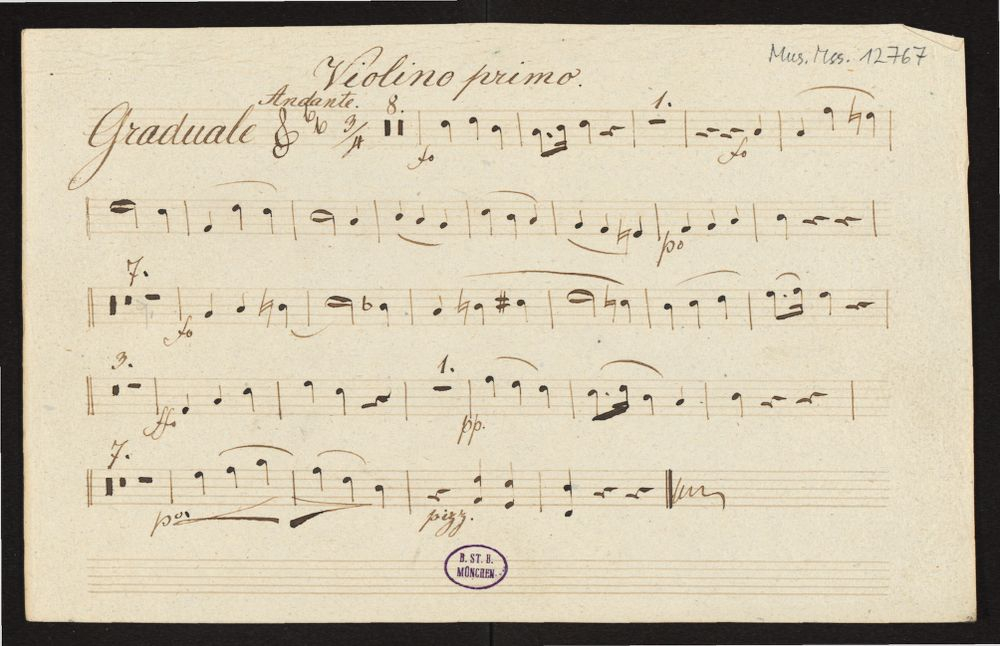 Mus. Mss. 12767
Violino primo.
Andante.
Graduale 3/4 8. 1.
fo fo
po
7.
fo
3. 1.
ffo pp.
7.
po pizz.
B. ST. B.
MÜNCHEN